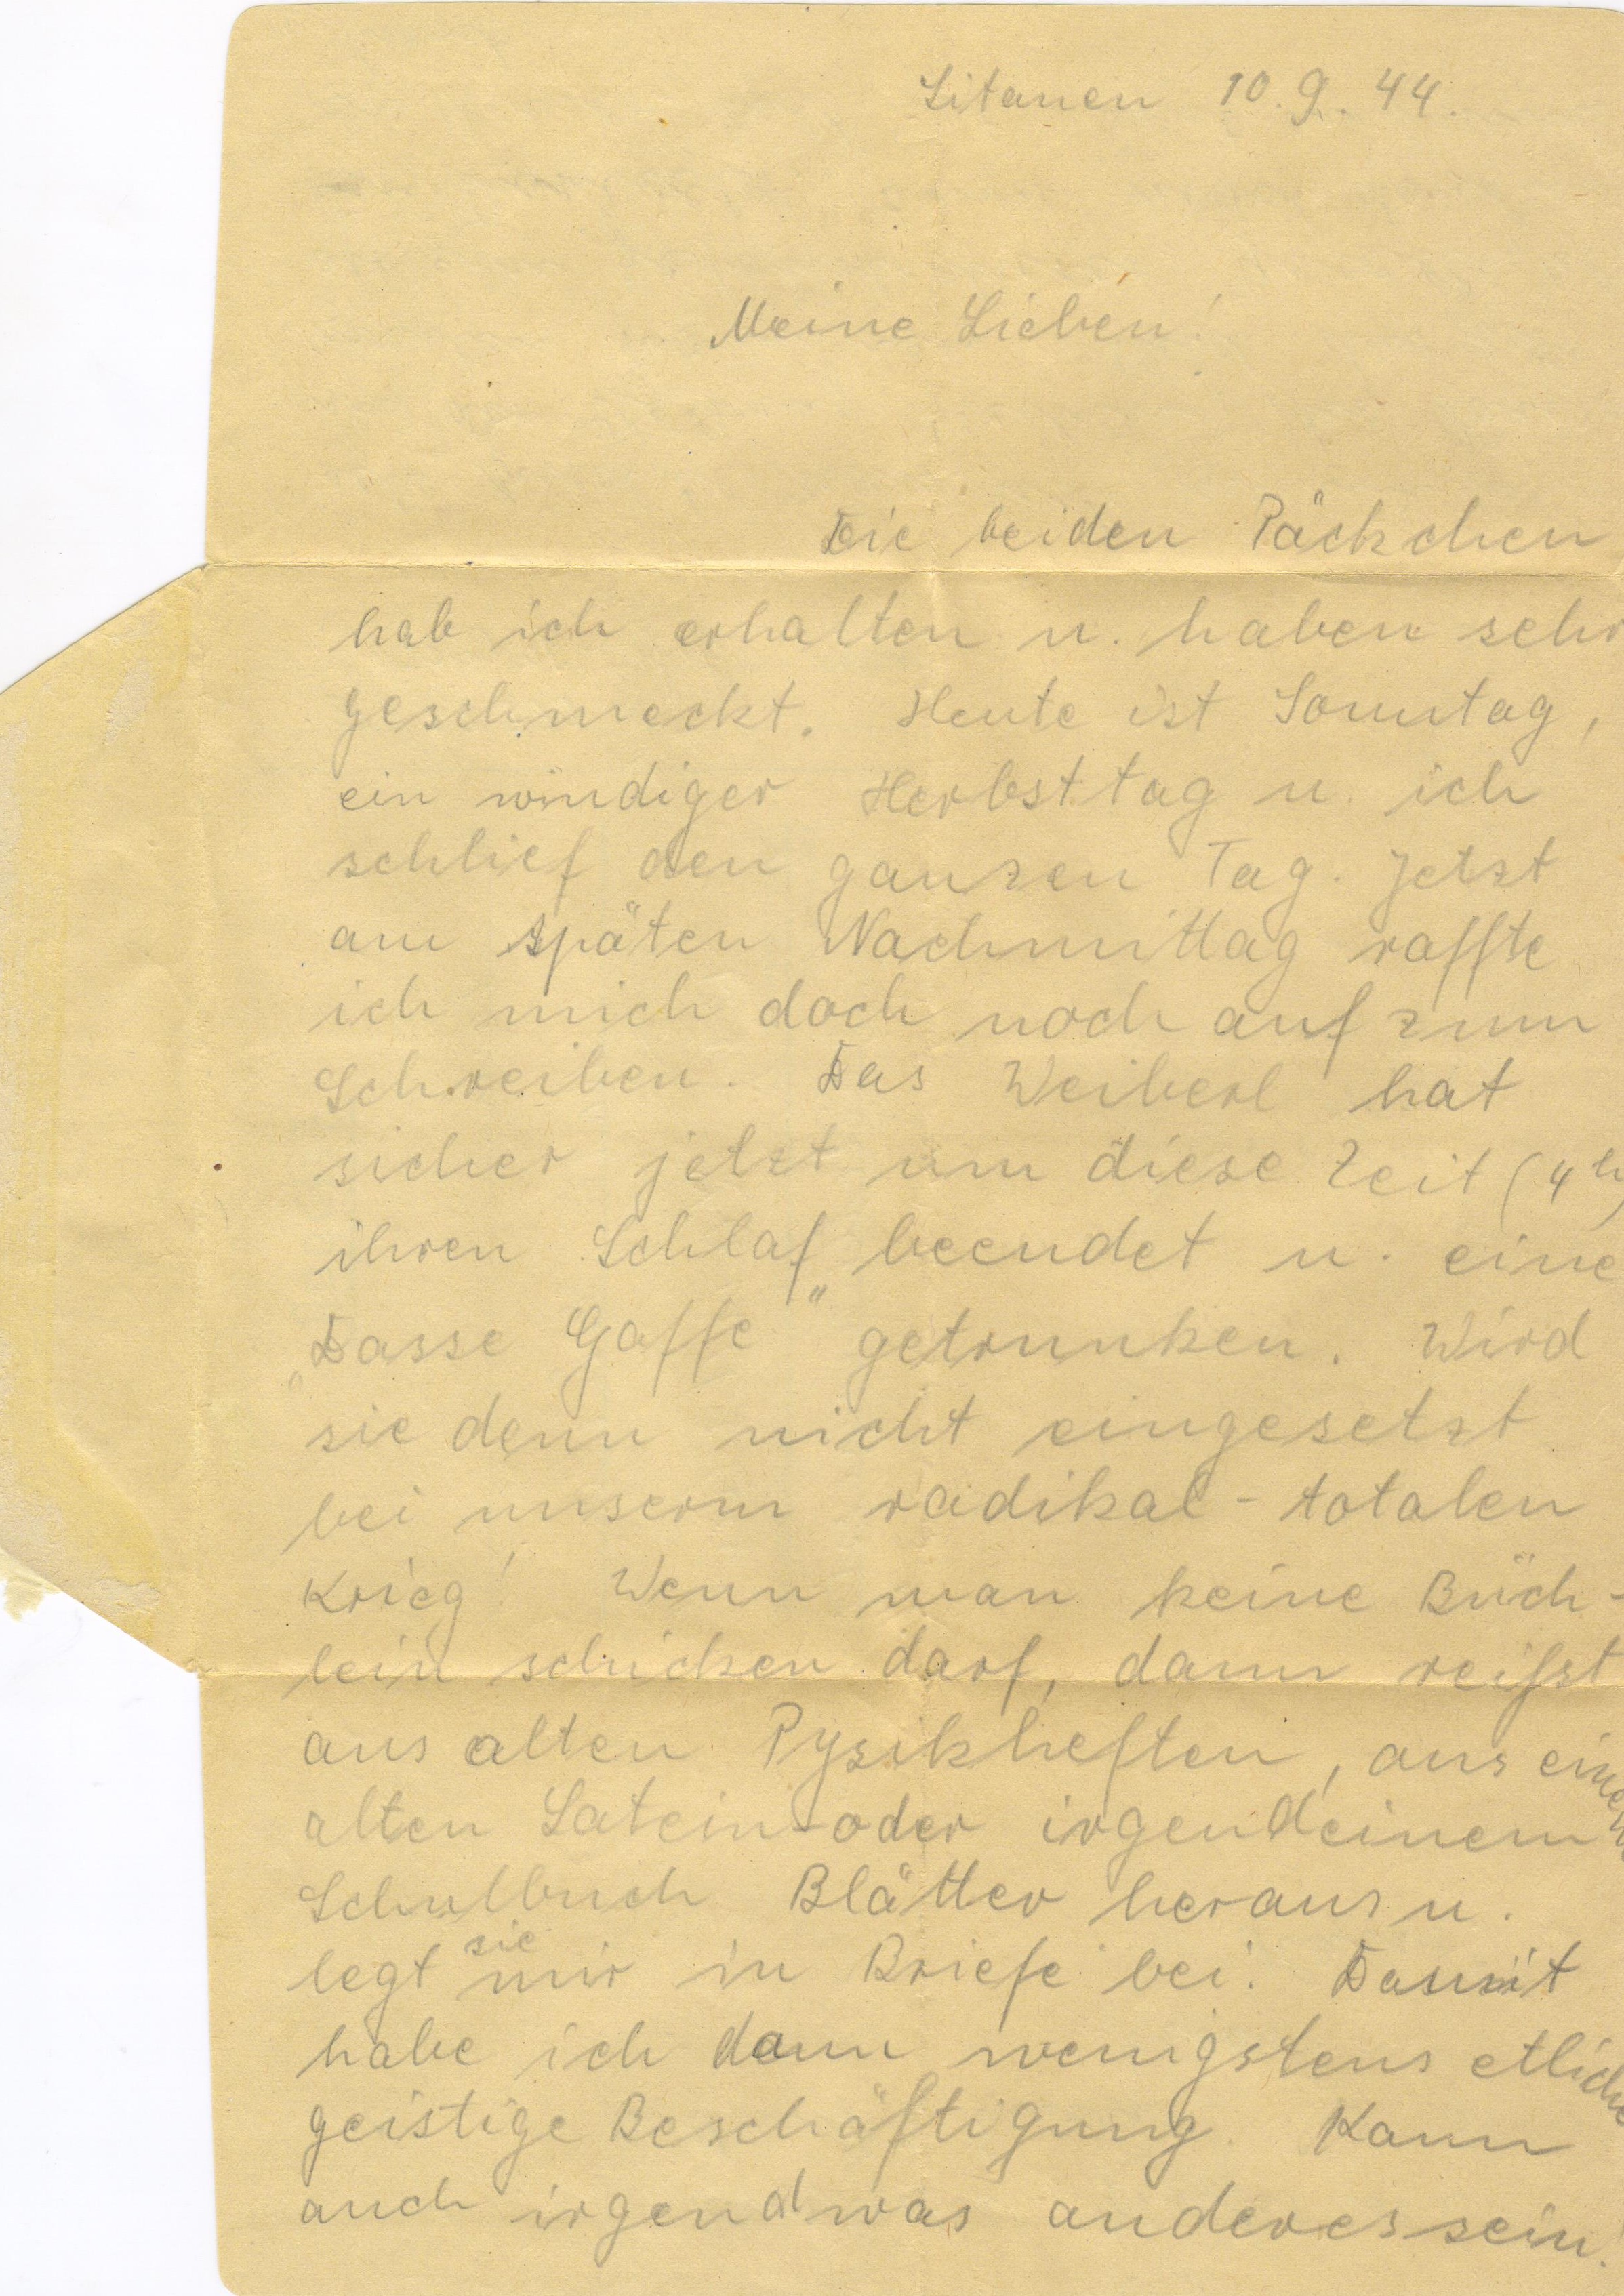 Litauen 10.9.44.
Meine Lieben!
Die beiden Päckchen
hab ich erhalten u. haben sehr
geschmeckt. Heute ist Sonntag,
ein windiger Herbsttag u. ich
schlief den ganzen Tag. Jetzt
am späten Nachmittag raffte
ich mich doch noch auf zum
Schreiben. Das Weiberl hat
sicher jetzt um diese Zeit (4h)
ihren Schlaf beendet u. eine
„Dasse Gaffe“ getrunken. Wird
sie denn nicht eingesetzt
bei unserm radikal-totalen
Krieg! Wenn man keine Büch-
lein schicken darf, dann reißt
aus alten Pysikheften, aus einem
alten Latein-oder irgendeinem
Schulbuch Blätter heraus u.
legt sie mir in Briefe bei. Damit
habe ich dann wenigstens etliche
geistige Beschäftigung. Kann
auch irgendwas anderes sein!